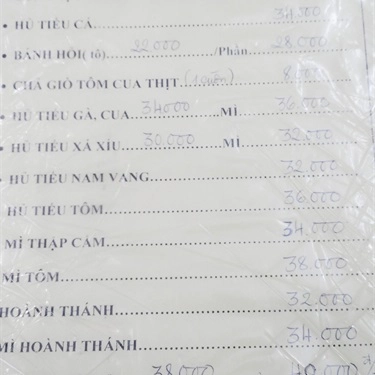 • HỦ TIẾU CÁ.......... 34.000
• BÁNH HỎI( tô) 22.000 /Phần 28.000
• CHẢ GIÒ TÔM CUA THỊT (1cuốn) 8.000
• HỦ TIẾU GÀ, CUA 34.000 MÌ 36.000
• HỦ TIẾU XÁ XÍU 30.000 MÌ 32.000
• HỦ TIẾU NAM VANG 32.000
HỦ TIẾU TÔM 36.000
MÌ THẬP CẨM 34.000
MÌ TÔM 38.000
HOÀNH THÁNH 32.000
MÌ HOÀNH THÁNH 34.000
38.000 40.000